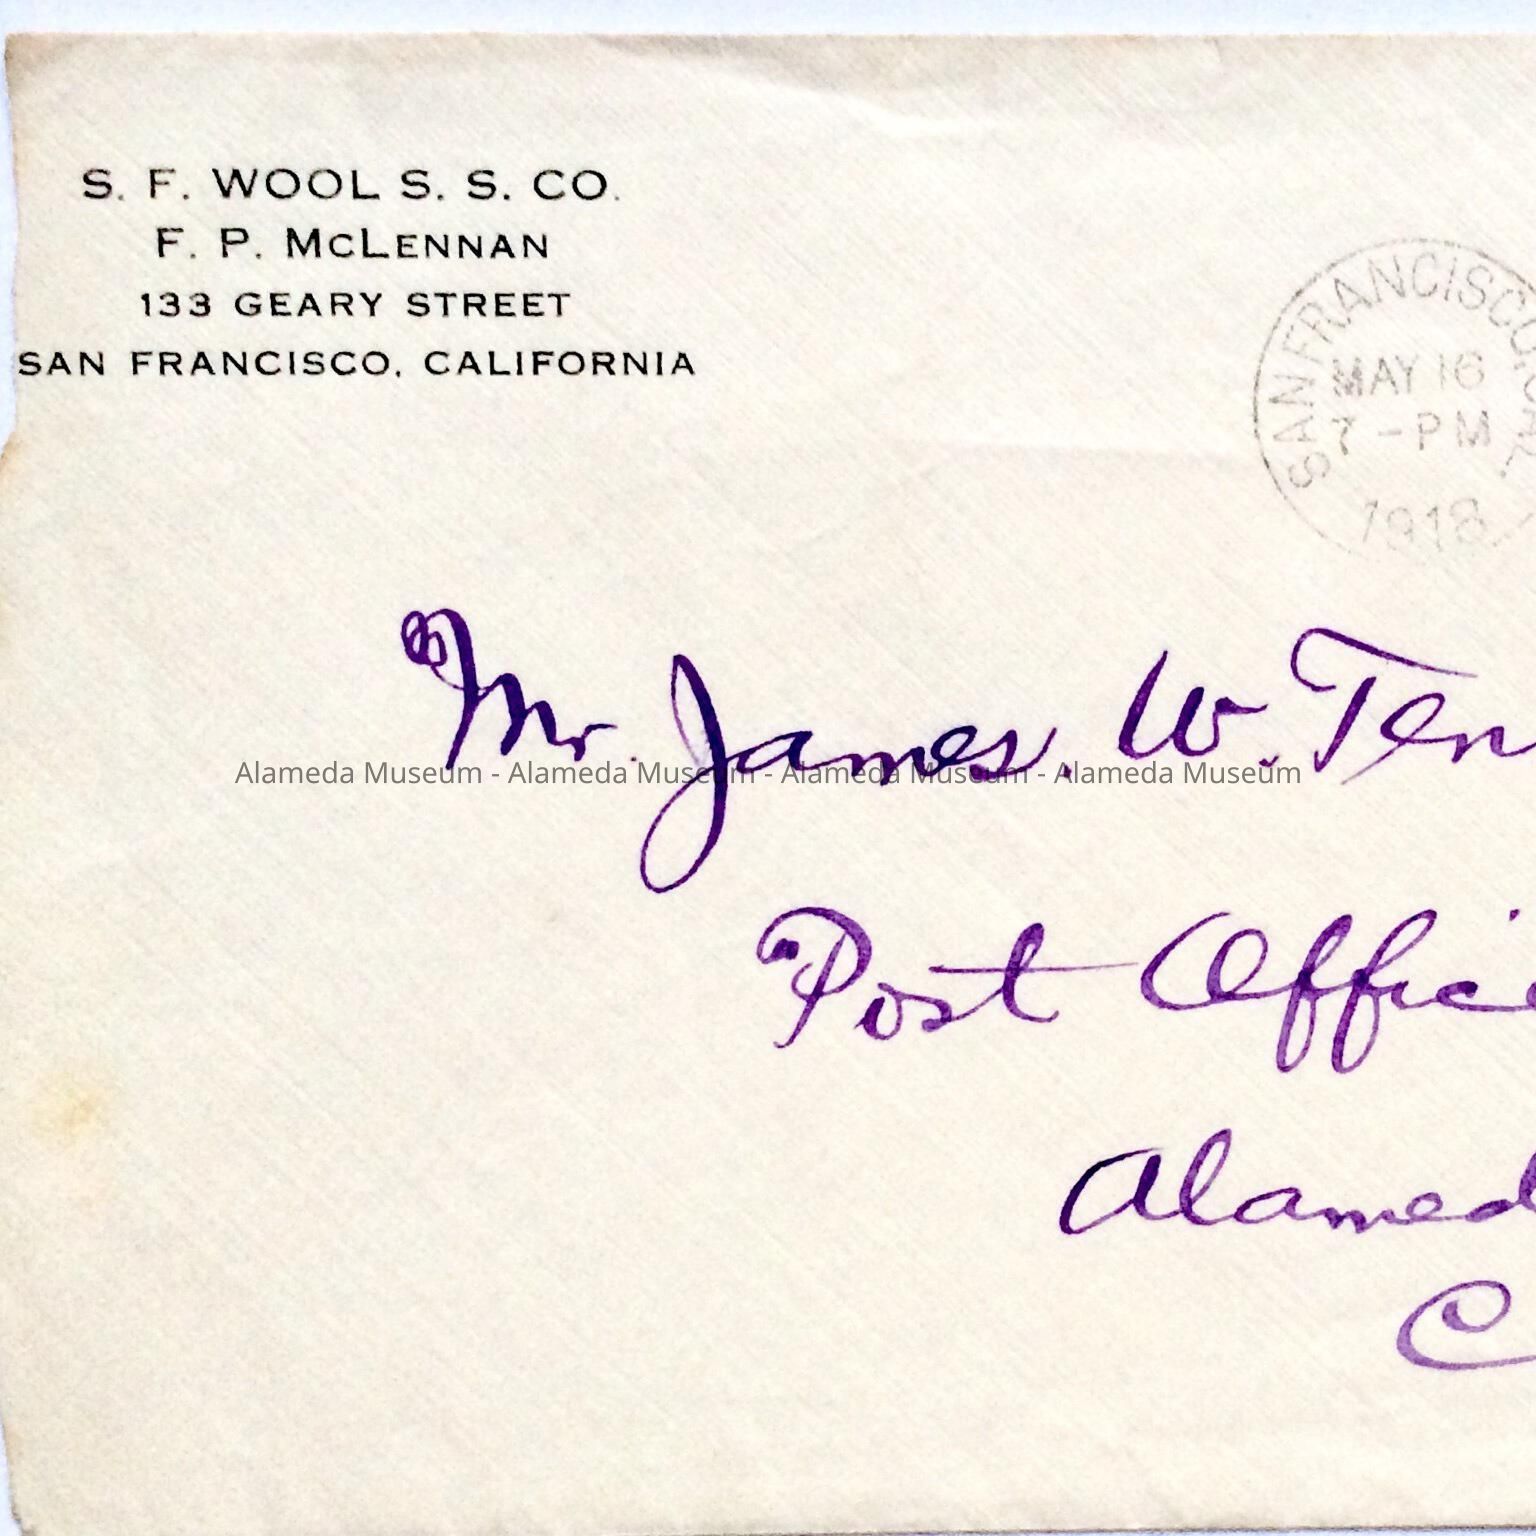 S. F. WOOL S. S. CO.
F. P. McLENNAN
133 GEARY STREET
SAN FRANCISCO, CALIFORNIA
SAN FRANCISCO, CAL.
MAY 16
7 - PM
1918
Mr. James. W. Ten
Alameda Museum - Alameda Museum - Alameda Museum - Alameda Museum
Post Offic
Alamed
C